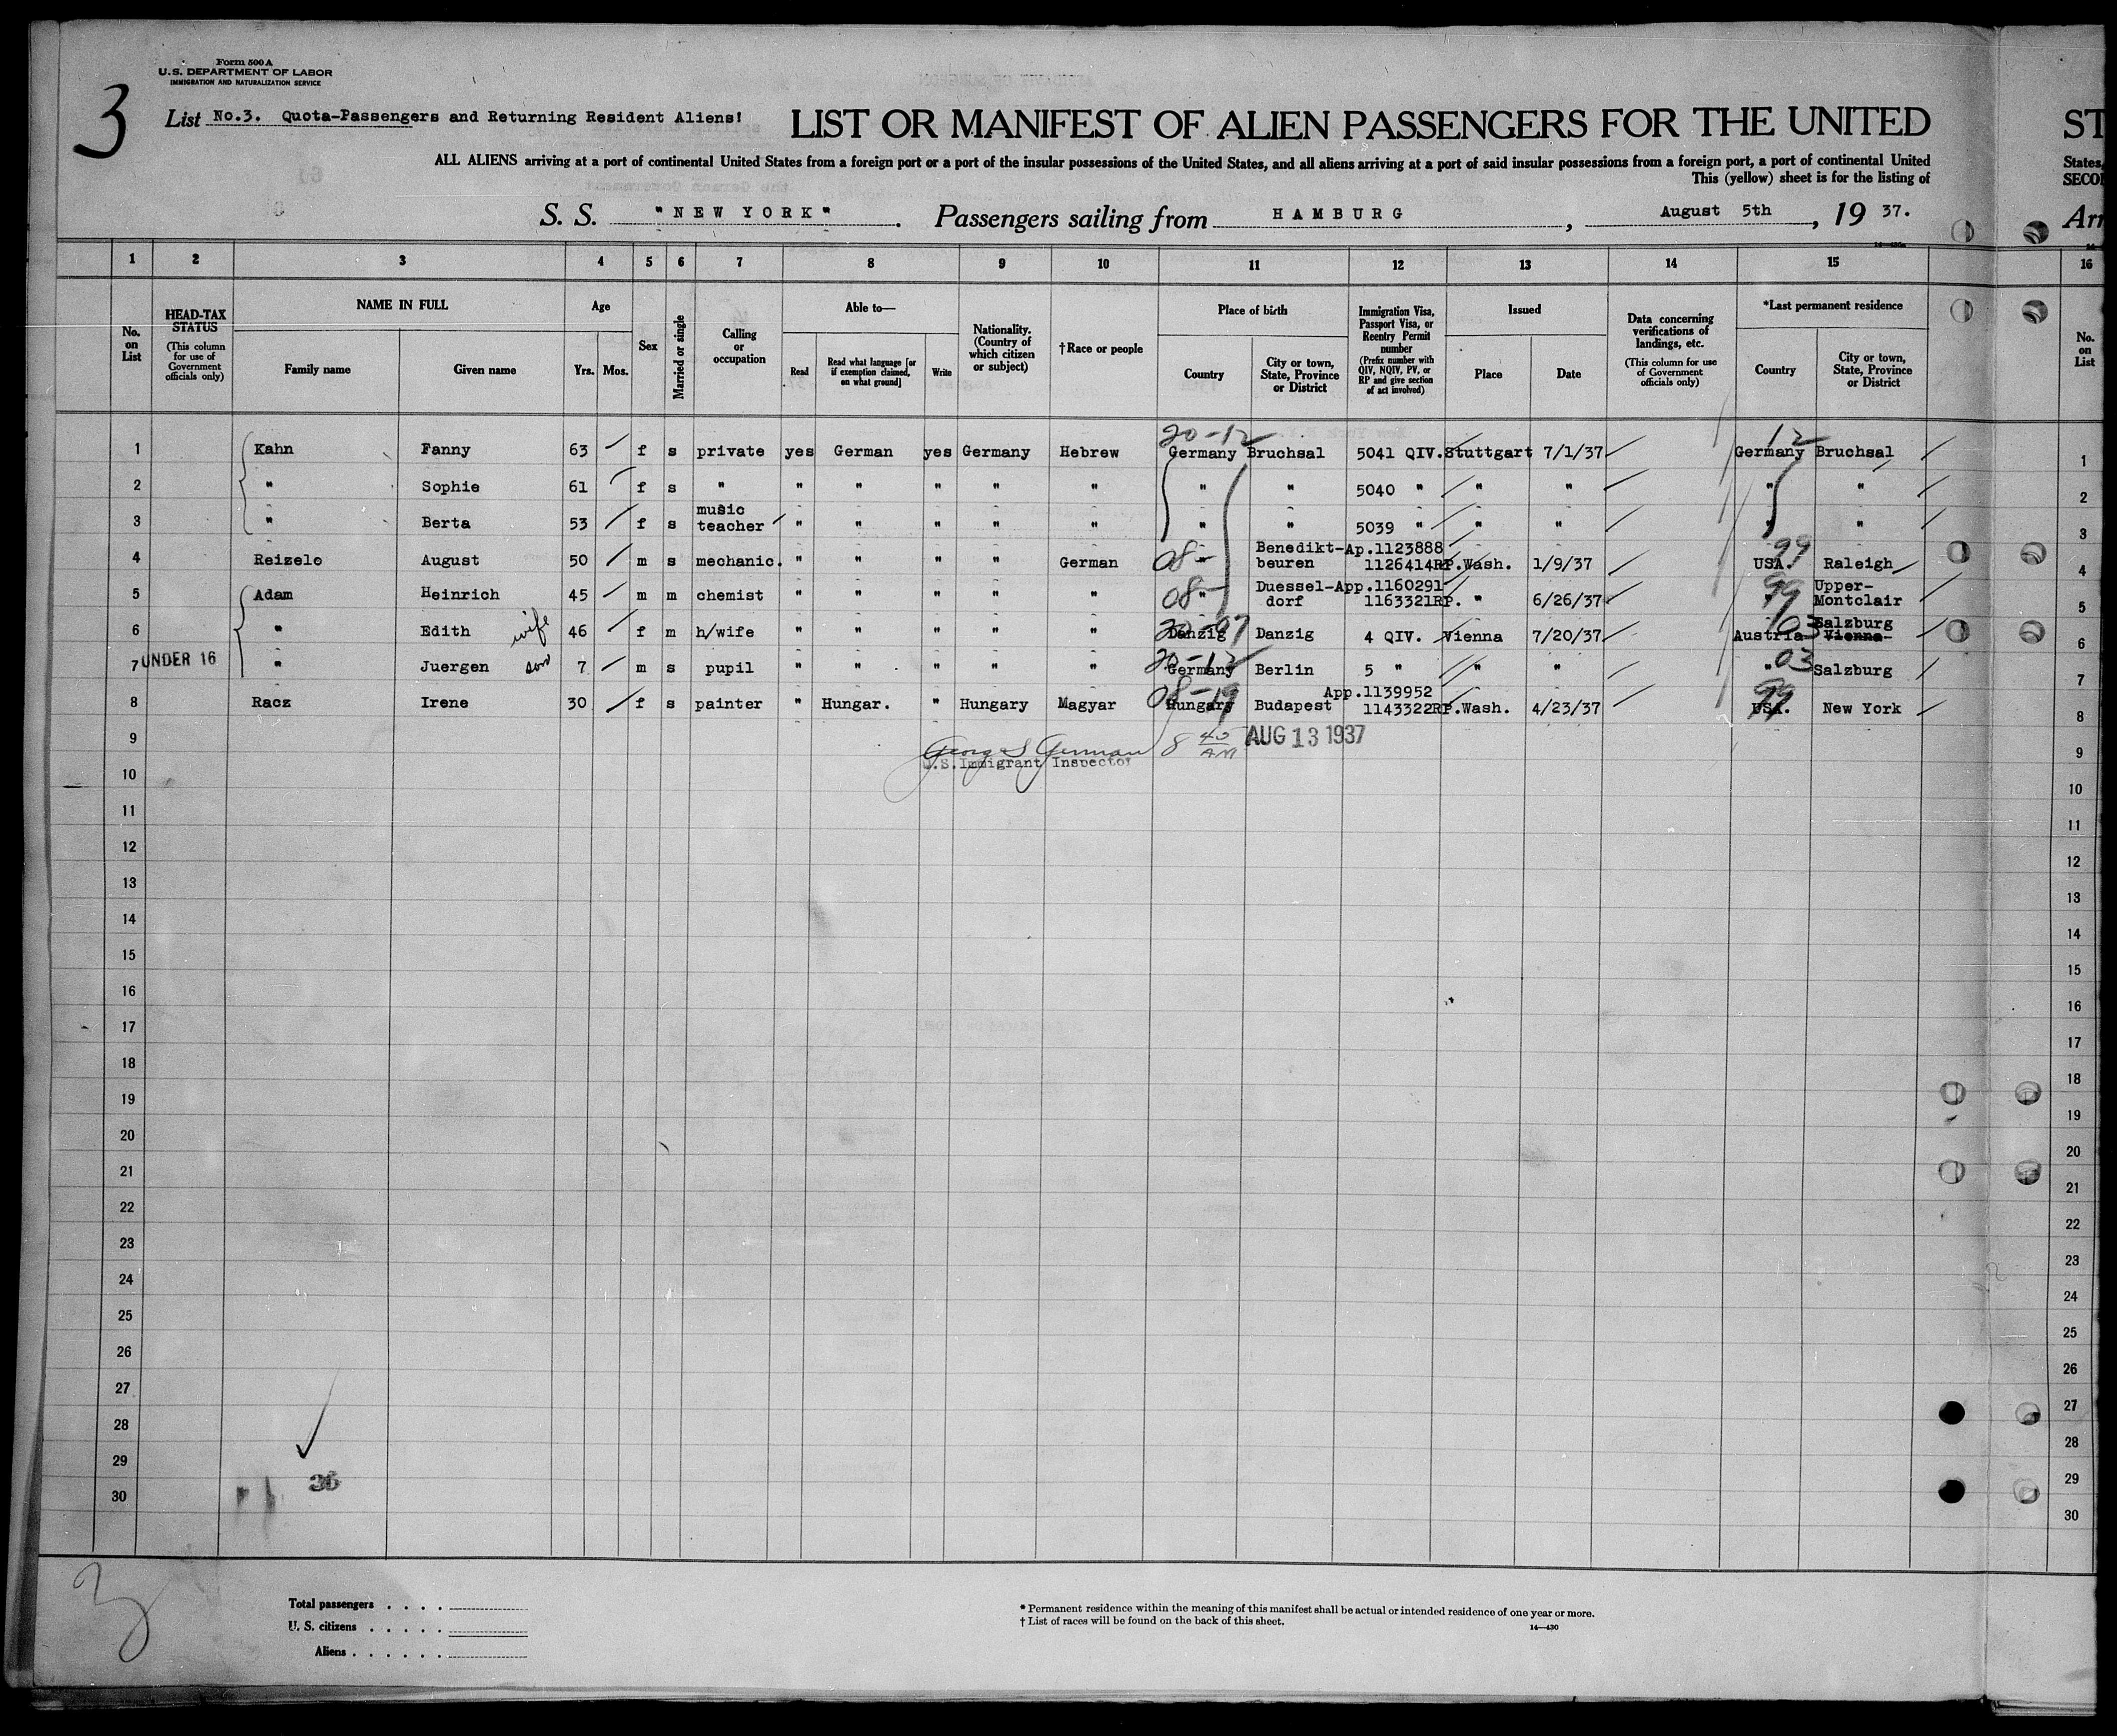 Form 500 A
U.S. DEPARTMENT OF LABOR
IMMIGRATION AND NATURALIZATION SERVICE
3
List No.3. Quota-Passengers and Returning Resident Aliens!
LIST OR MANIFEST OF ALIEN PASSENGERS FOR THE UNITED
ST
ALL ALIENS arriving at a port of continental United States from a foreign port or a port of the insular possessions of the United States, and all aliens arriving at a port of said insular possessions from a foreign port, a port of continental United
States,
This (yellow) sheet is for the listing of
SECO
S. S. "NEW YORK". Passengers sailing from HAMBURG, August 5th, 19 37.
Arr
1 2 3 4 5 6 7 8 9 10 11 12 13 14 15 16
No. on List
HEAD-TAX STATUS (This column for use of Government officials only)
NAME IN FULL
Family name Given name
Age
Yrs. Mos.
Sex
Married or single
Calling or occupation
Able to—
Read Read what language [or if exemption claimed, on what ground] Write
Nationality. (Country of which citizen or subject)
†Race or people
Place of birth
Country City or town, State, Province or District
Immigration Visa, Passport Visa, or Reentry Permit number (Prefix number with QIV, NQIV, PV, or RP and give section of act involved)
Issued
Place Date
Data concerning verifications of landings, etc. (This column for use of Government officials only)
*Last permanent residence
Country City or town, State, Province or District
No. on List
20-12 12
1 Kahn Fanny 63 f s private yes German yes Germany Hebrew Germany Bruchsal 5041 QIV. Stuttgart 7/1/37 Germany Bruchsal 1
2 " Sophie 61 f s " " " " " " " " 5040 " " " " " 2
3 " Berta 53 f s music teacher " " " " " " " 5039 " " " " " 3
4 Reizelo August 50 m s mechanic. " " " " German 08- " Benedikt-beuren Ap.1123888 1126414RP. Wash. 1/9/37 99 USA. Raleigh 4
5 Adam Heinrich 45 m m chemist " " " " " 08- " Duessel-dorf App.1160291 1163321RP. " 6/26/37 99 " Upper-Montclair 5
6 " Edith wife 46 f m h/wife " " " " " 20-97 Danzig Danzig 4 QIV. Vienna 7/20/37 03 Austria Salzburg Vienna 6
7 UNDER 16 " Juergen son 7 m s pupil " " " " " 20-12 Germany Berlin 5 " " " " 03 Salzburg 7
8 Racz Irene 30 f s painter " Hungar. " Hungary Magyar 08-19 Hungary Budapest App.1139952 1143322RP. Wash. 4/23/37 99 USA. New York 8
9 George S German 8 40 AM AUG 13 1937 9
U.S. Immigrant Inspector
10 10
11 11
12 12
13 13
14 14
15 15
16 16
17 17
18 18
19 19
20 20
21 21
22 22
23 23
24 24
25 25
26 26
27 27
28 28
29 29
30 30
3
Total passengers . . . .
U. S. citizens . . . . .
Aliens . . . . . .
* Permanent residence within the meaning of this manifest shall be actual or intended residence of one year or more.
† List of races will be found on the back of this sheet.
14—430